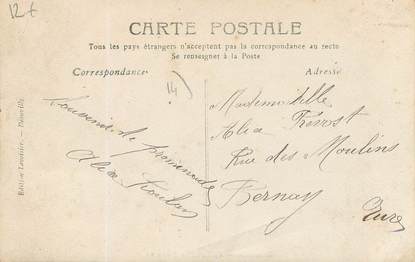 12€
CARTE POSTALE
Tous les pays étrangers n'acceptent pas la correspondance au recto
Se renseigner à la Poste
Correspondance
Adresse
14
Souvenir de promenade
Alice
Mademoiselle
Alice Prévost
Rue des Moulins
Bernay
Eure